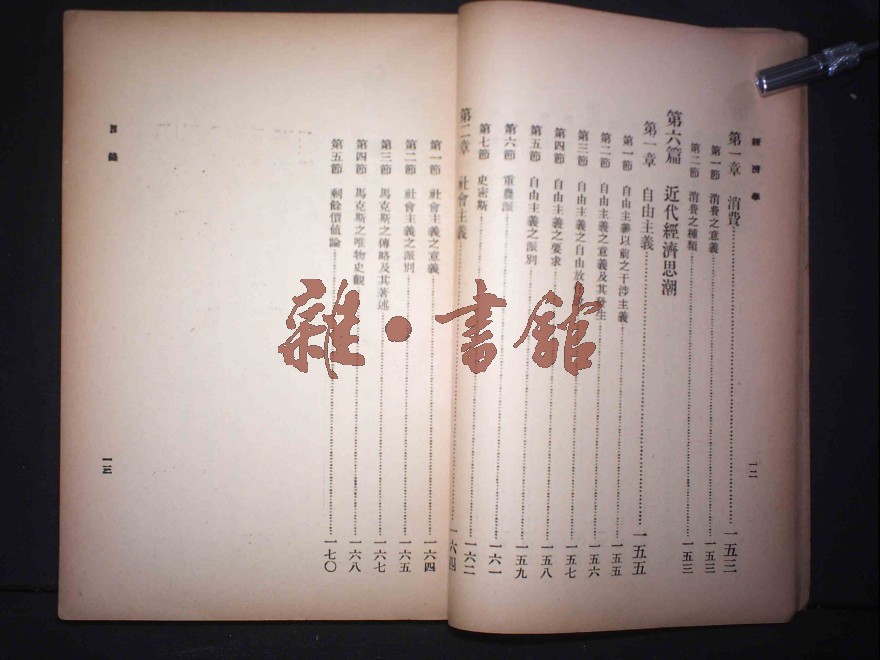 經濟學
第一章 消費……一五三
第一節 消費之意義……一五三
第二節 消費之種類……一五三
第六篇 近代經濟思潮
第一章 自由主義……一五五
第一節 自由主義以前之干涉主義……一五五
第二節 自由主義之意義及其發生……一五六
第三節 自由主義之自由放任……一五七
第四節 自由主義之要求……一五八
第五節 自由主義之派別……一五九
第六節 重農派……一六一
第七節 史密斯……一六二
第二章 社會主義……一六四
第一節 社會主義之意義……一六四
第二節 社會主義之派別……一六五
第三節 馬克斯之傳略及其著述……一六七
第四節 馬克斯之唯物史觀……一六八
第五節 剩餘價值論……一七〇
一二
目錄
一三
雜·書館